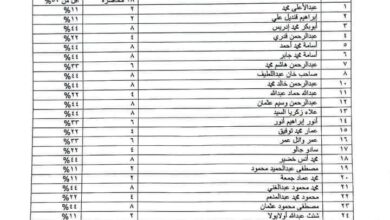 ١٨ محاضرة أقل من ٥٠%
١ عبدالأعلى محمد ٢ ١١%
٢ إبراهيم قنديل علي ٢ ١١%
٣ أبوبكر محمد إدريس ٨ ٤٤%
٤ عبدالرحمن قدري ٤ ٢٢%
٥ أسامة محمد أحمد ٨ ٤٤%
٦ أسامة محمد جابر ٨ ٤٤%
٧ عبدالرحمن هاشم محمد ٦ ٣٣%
٨ صاحب خان عبداللطيف ٨ ٤٤%
١٠ عبدالرحمن خالد محمد ٢ ١١%
١١ عبدالله حماد عبدالله ٤ ٢٢%
١٢ عبدالرحمن وسيم عثمان ٨ ٤٤%
١٣ علاء زكريا السيد ٨ ٤٤%
١٤ أنور إبراهيم أنور ٦ ٣٣%
١٥ عمار محمد توفيق ٤ ٢٢%
١٦ عمر وائل عمر ٦ ٣٣%
١٧ سادو جالو ٤ ٢٢%
١٨ محمد أنس خضير ٨ ٤٤%
١٩ مصطفى عبدالحميد محمود ٢ ١١%
٢٠ محمد عماد جمعة ٢ ١١%
٢١ محمد محمود عبدالغني ٨ ٤٤%
٢٢ محمود محمد عبدالمنعم ٤ ٢٢%
٢٣ مصطفى محمود عثمان ٨ ٤٤%
٢٤ عبدالله ٢ ١١%